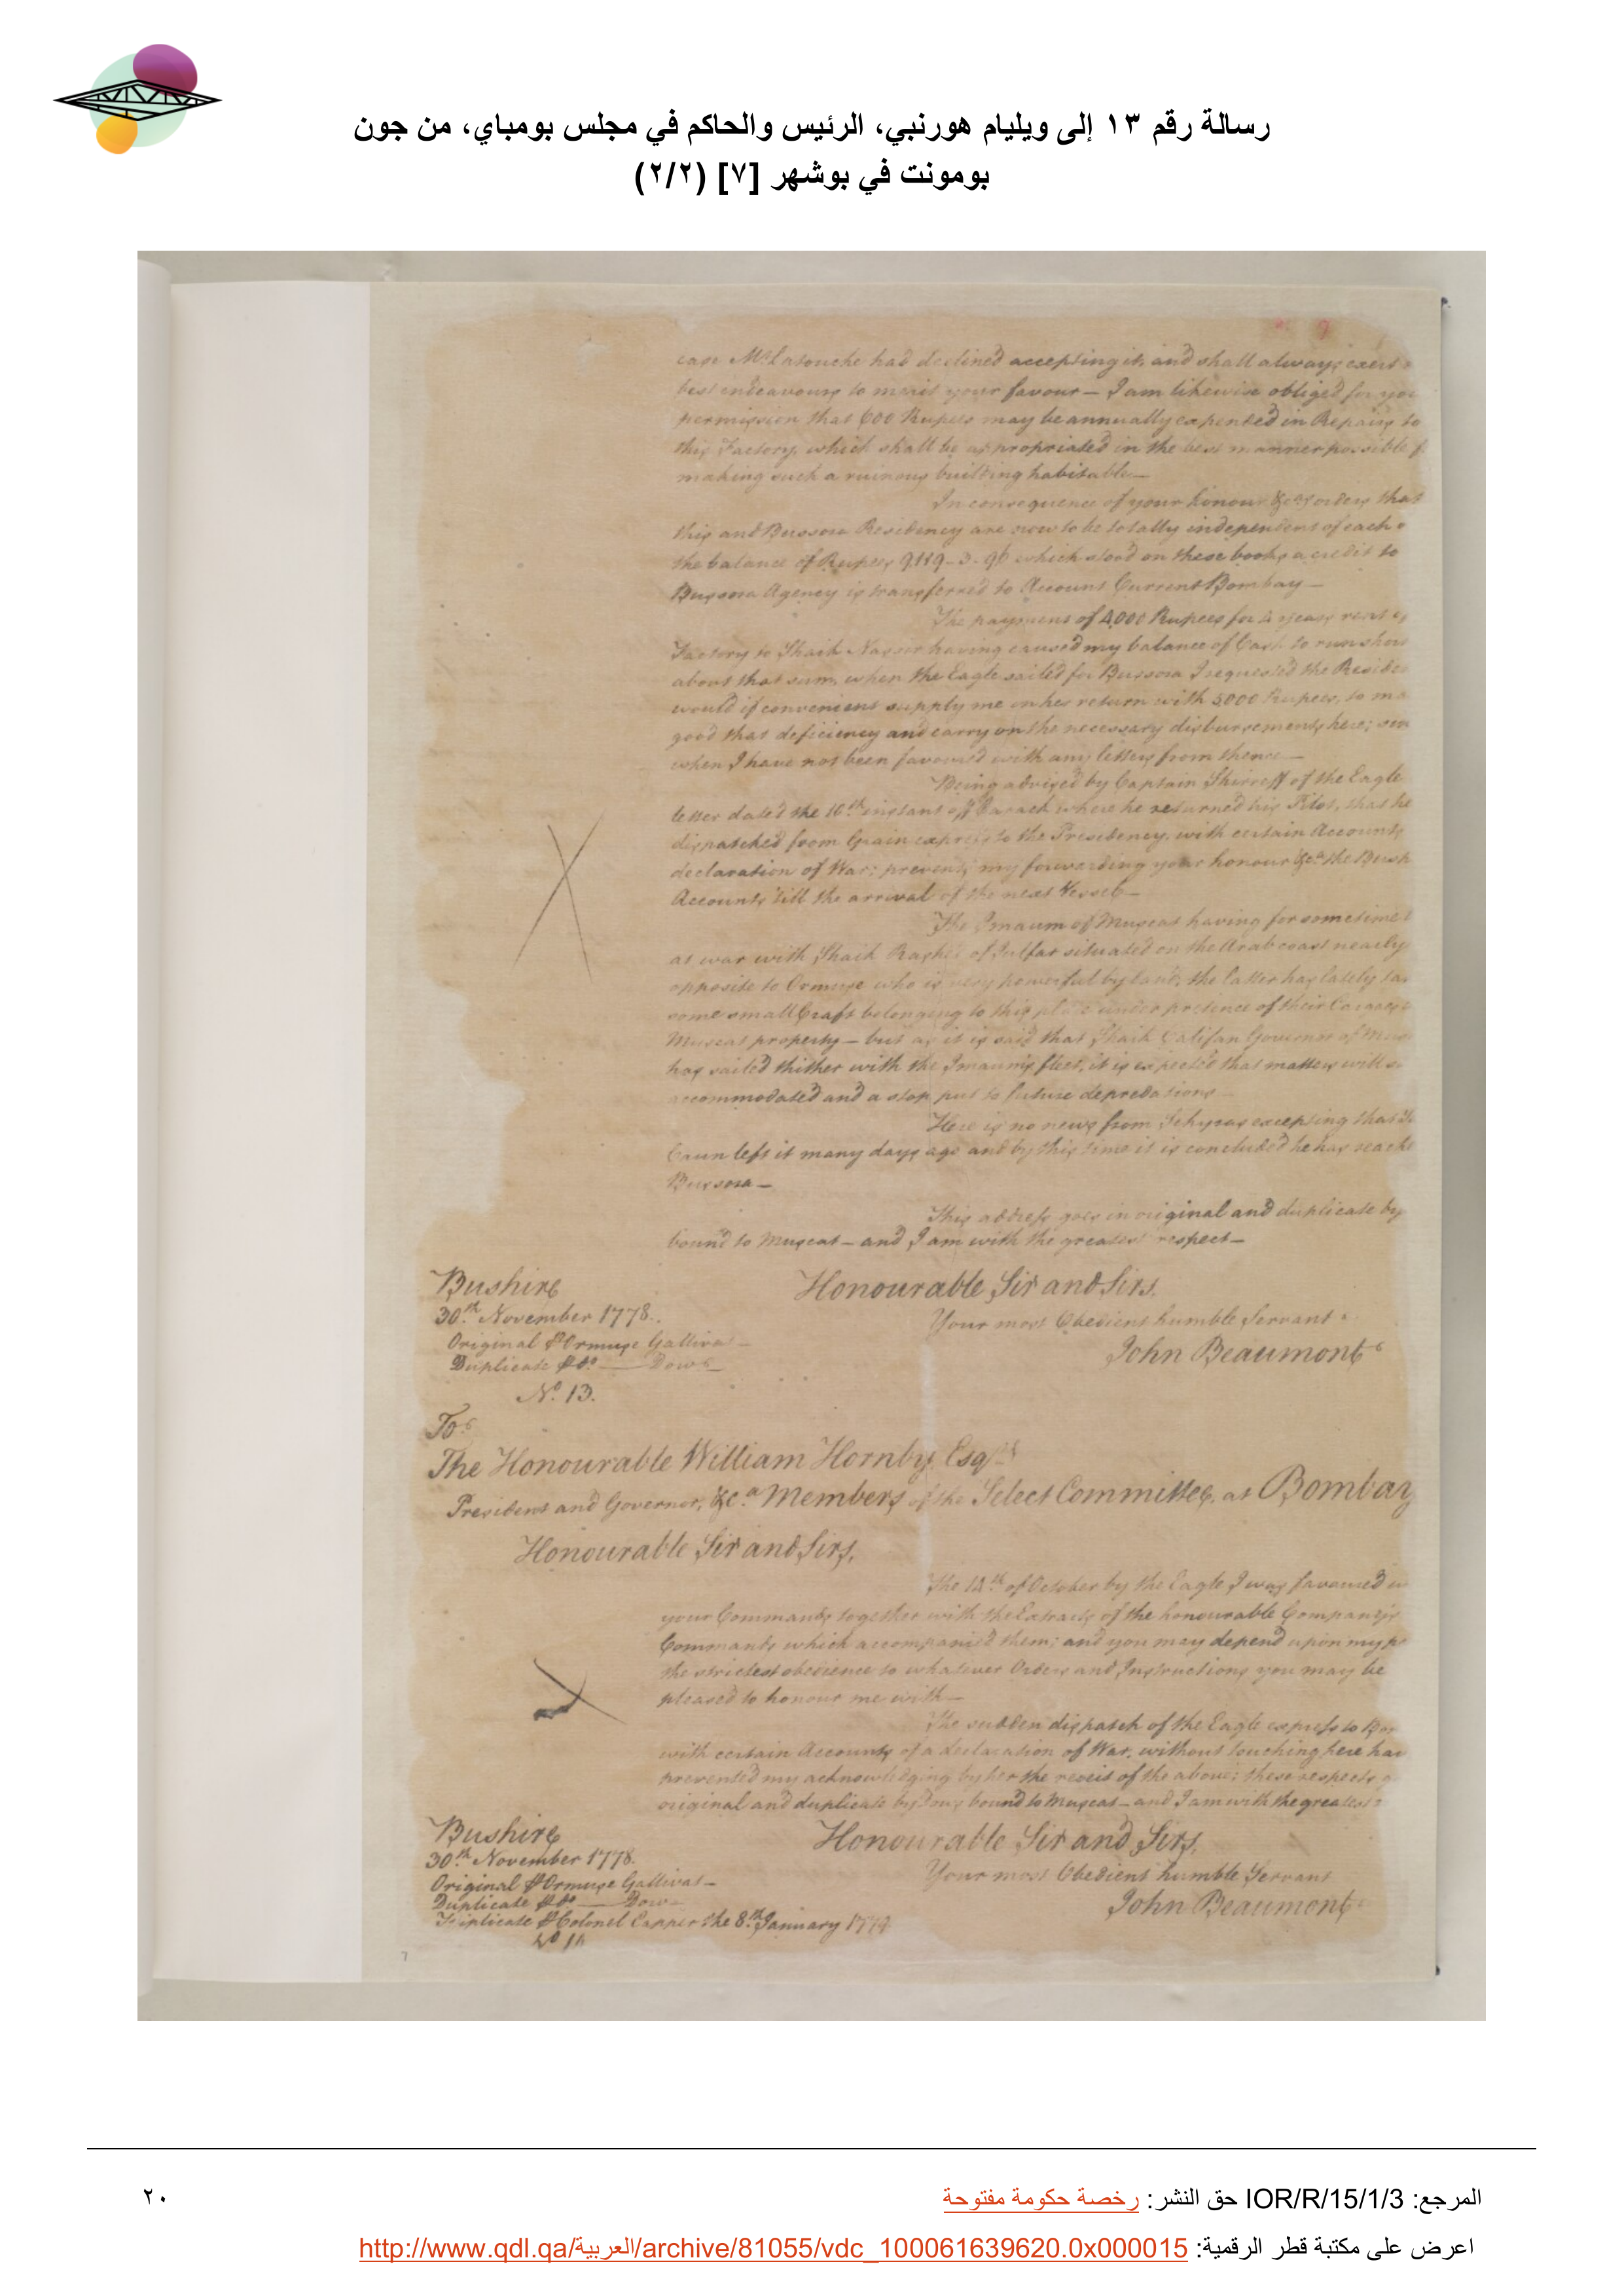 رسالة رقم ١٣ إلى ويليام هورنبي، الرئيس والحاكم في مجلس بومباي، من جون
بومونت في بوشهر [٧] (٢/٢)
case Mr. Latouche had declined accepting it, and shall always exert
best endeavours to merit your favour — I am likewise obliged for you
permission that 600 Rupees may be annually expended in Repairs to
this Factory, which shall be appropriated in the best manner possible f
making such a ruinous building habitable —
In consequence of your honour &ca. orders that
this and Bussora Residency are now to be totally independent of each o
the balance of Rupees 9119-3-96 which stood on these books a credit to
Bussora Agency is transferred to Account Current Bombay —
The payment of 4,000 Rupees for 4 years rent of
Factory to Shaik Nasser having caused my balance of Cash to run short
about that sum, when the Eagle sailed for Bussora I requested the Residen
would if convenient supply me in her return with 5000 Rupees, to ma
good that deficiency and carry on the necessary disbursements here; sin
when I have not been favoured with any letters from thence —
Being advised by Captain Shirreff of the Eagle
letter dated the 16th. instant off Carack where he returned his Pilot, that he
dispatched from Grain express to the Presidency, with certain Accounts
declaration of War; prevents my forwarding your honour &ca. the Bush
Accounts 'till the arrival of the next Vessel —
The Imaum of Muscat having for sometime
at war with Shaik Rashid of Julfar situated on the Arab coast nearly
opposite to Ormuse who is very powerful by land, the latter has lately ta
some small Craft belonging to this place under pretence of their Cargoes
Muscat property — but as it is said that Shaik Califan Governor of Mus
has sailed thither with the Imaum's fleet, it is expected that matters will
accommodated and a stop put to future depredations —
Here is no news from Schyras excepting that
Caun left it many days ago and by this time it is concluded he has reach
Bussora —
This address goes in original and duplicate by
bound to Muscat — and I am with the greatest respect —
Bushire
Honourable Sir and Sirs,
30th. November 1778.
Your most Obedient humble Servant
Original P Ormuse Gallivat —
John Beaumont
Duplicate P Do. — Dow —
No. 13.
To
The Honourable William Hornby Esqr.
President and Governor, &ca. Members of the Select Committee, at Bombay
Honourable Sir and Sirs,
The 14th. of October by the Eagle I was favoured
your Commands together with the Extracts of the honourable Company's
Commands which accompanied them; and you may depend upon my p
the strictest obedience to whatever Orders and Instructions you may be
pleased to honour me with —
The sudden dispatch of the Eagle express to Bo
with certain Accounts of a declaration of War, without touching here has
prevented my acknowledging by her the receit of the above; these respects
original and duplicate by bound to Muscat — and I am with the greatest
Bushire
Honourable Sir and Sirs,
30th. November 1778.
Your most Obedient humble Servant
Original P Ormuse Gallivat —
John Beaumont
Duplicate P Do. — Dow —
Triplicate P Colonel Capper the 8th. January 1779
No 14
المرجع: IOR/R/15/1/3 حق النشر: رخصة حكومة مفتوحة
٢٠
اعرض على مكتبة قطر الرقمية: http://www.qdl.qa/العربية/archive/81055/vdc_100061639620.0x000015